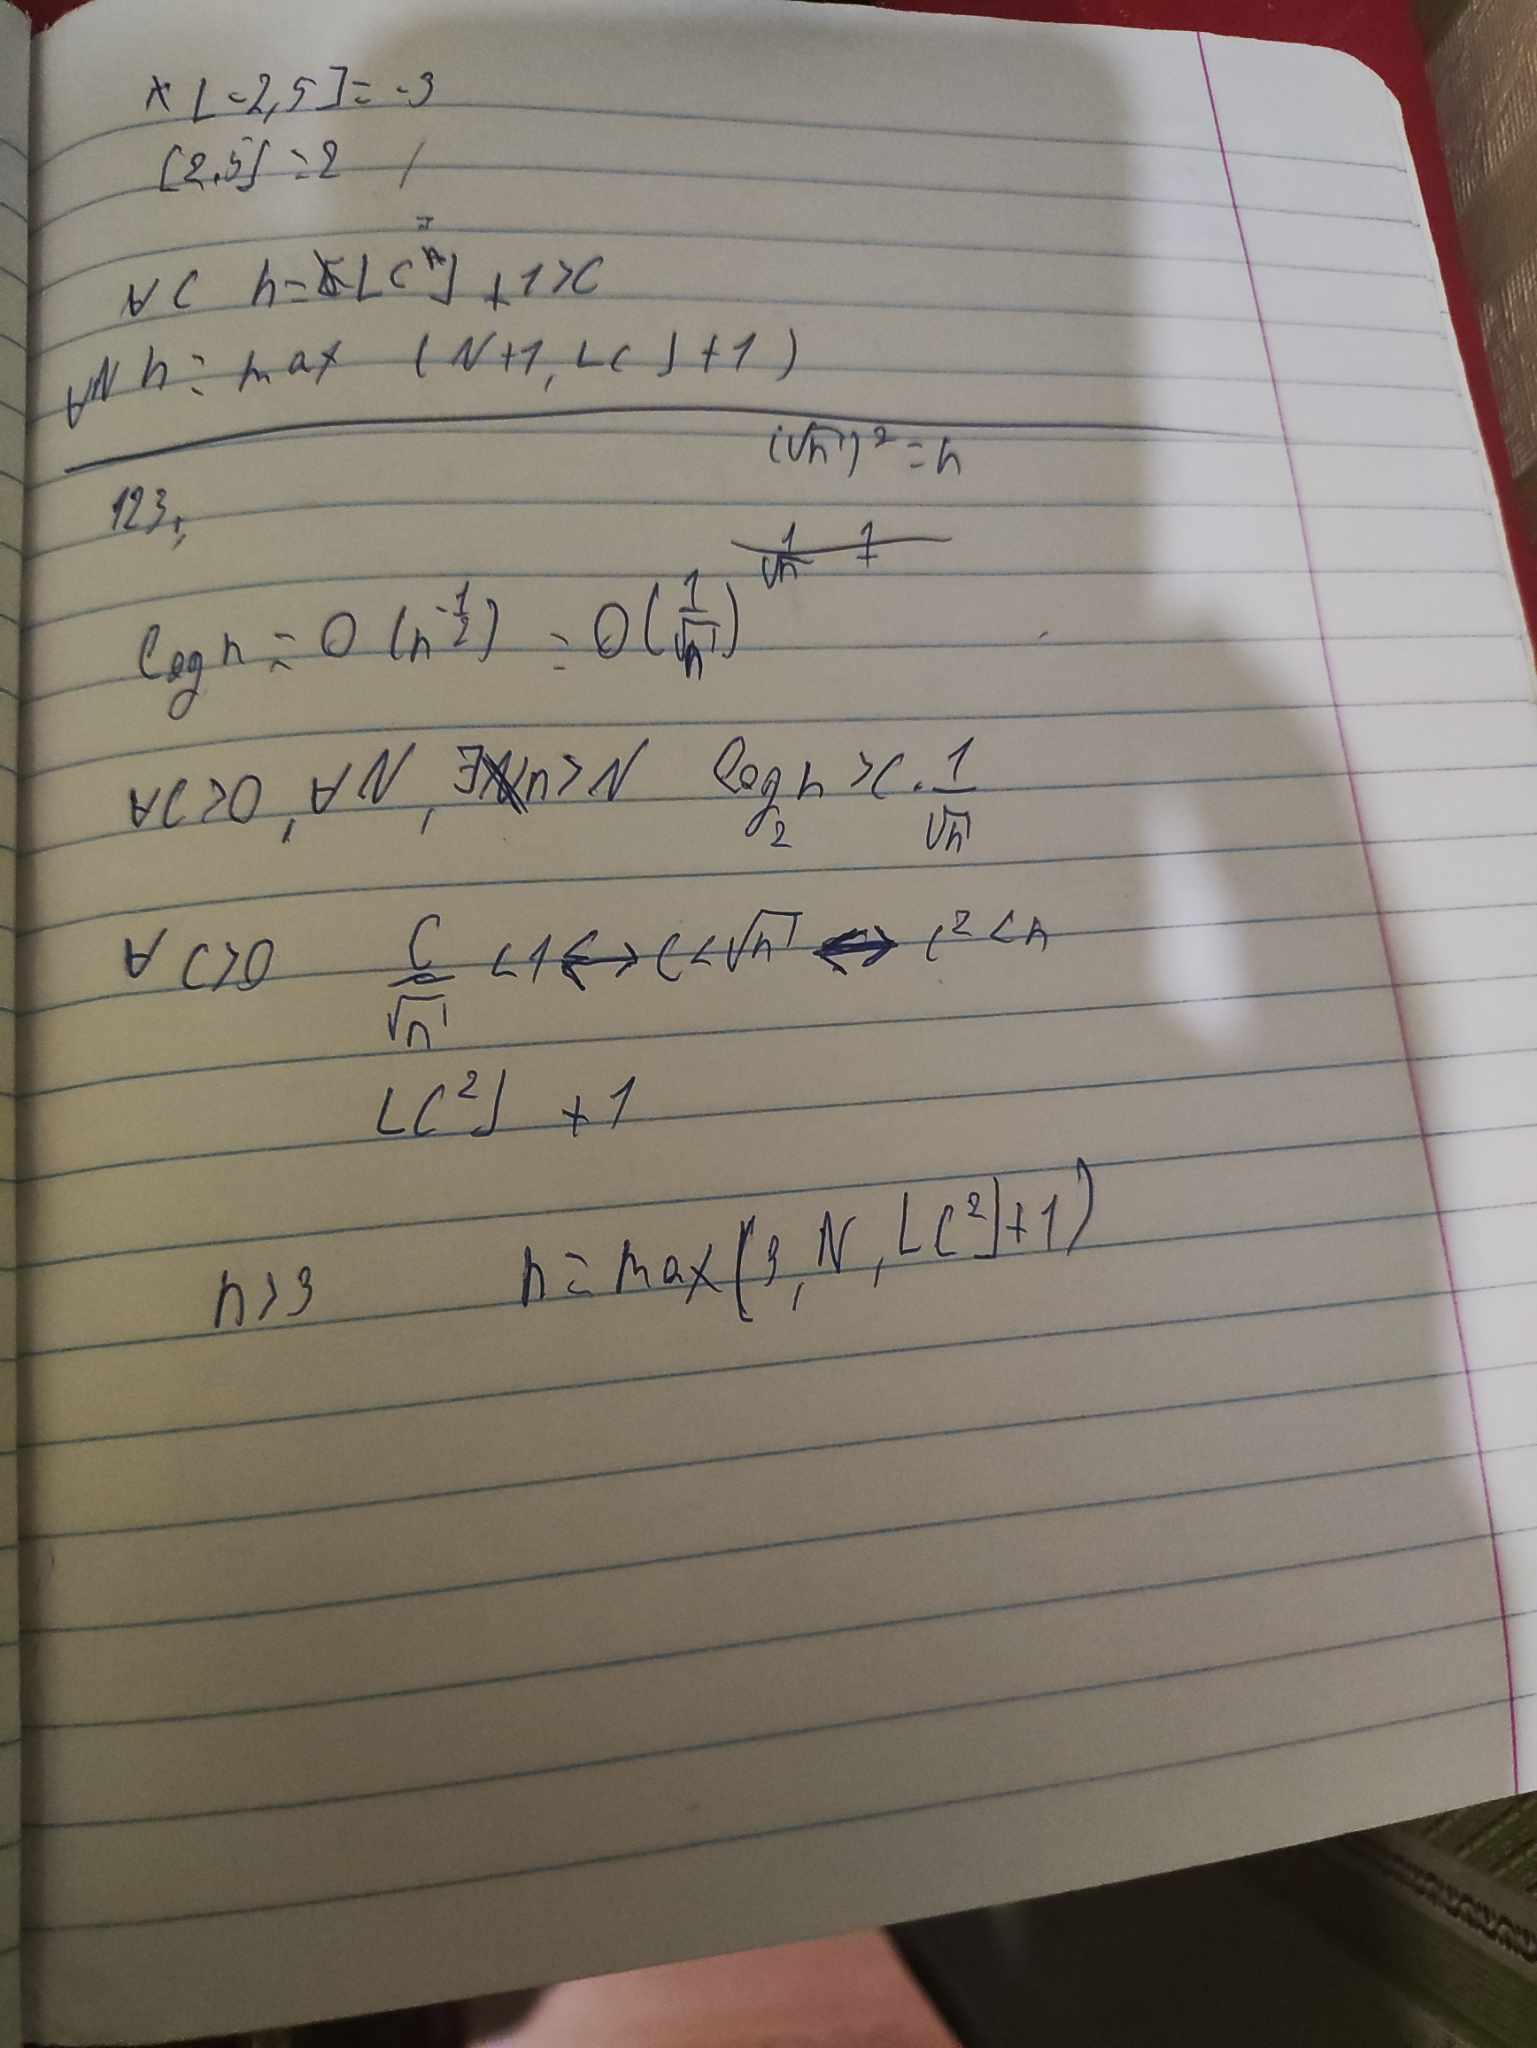 * ⌊-2,5⌋ = -3
⌊2,5⌋ = 2
∀C n = ⌊C⌋ + 1 > C
∀N n = max (N+1, ⌊C⌋+1)
(√n)² = n
123.
1/√n 1
log n = O(n^{-1/2}) = O(1/√n)
∀C>0, ∀N, ∃n>N log₂n > C · 1/√n
∀C>0 C/√n < 1 ↔ C < √n ↔ C² < n
⌊C²⌋ + 1
n>3 n = max(3, N, ⌊C²⌋+1)